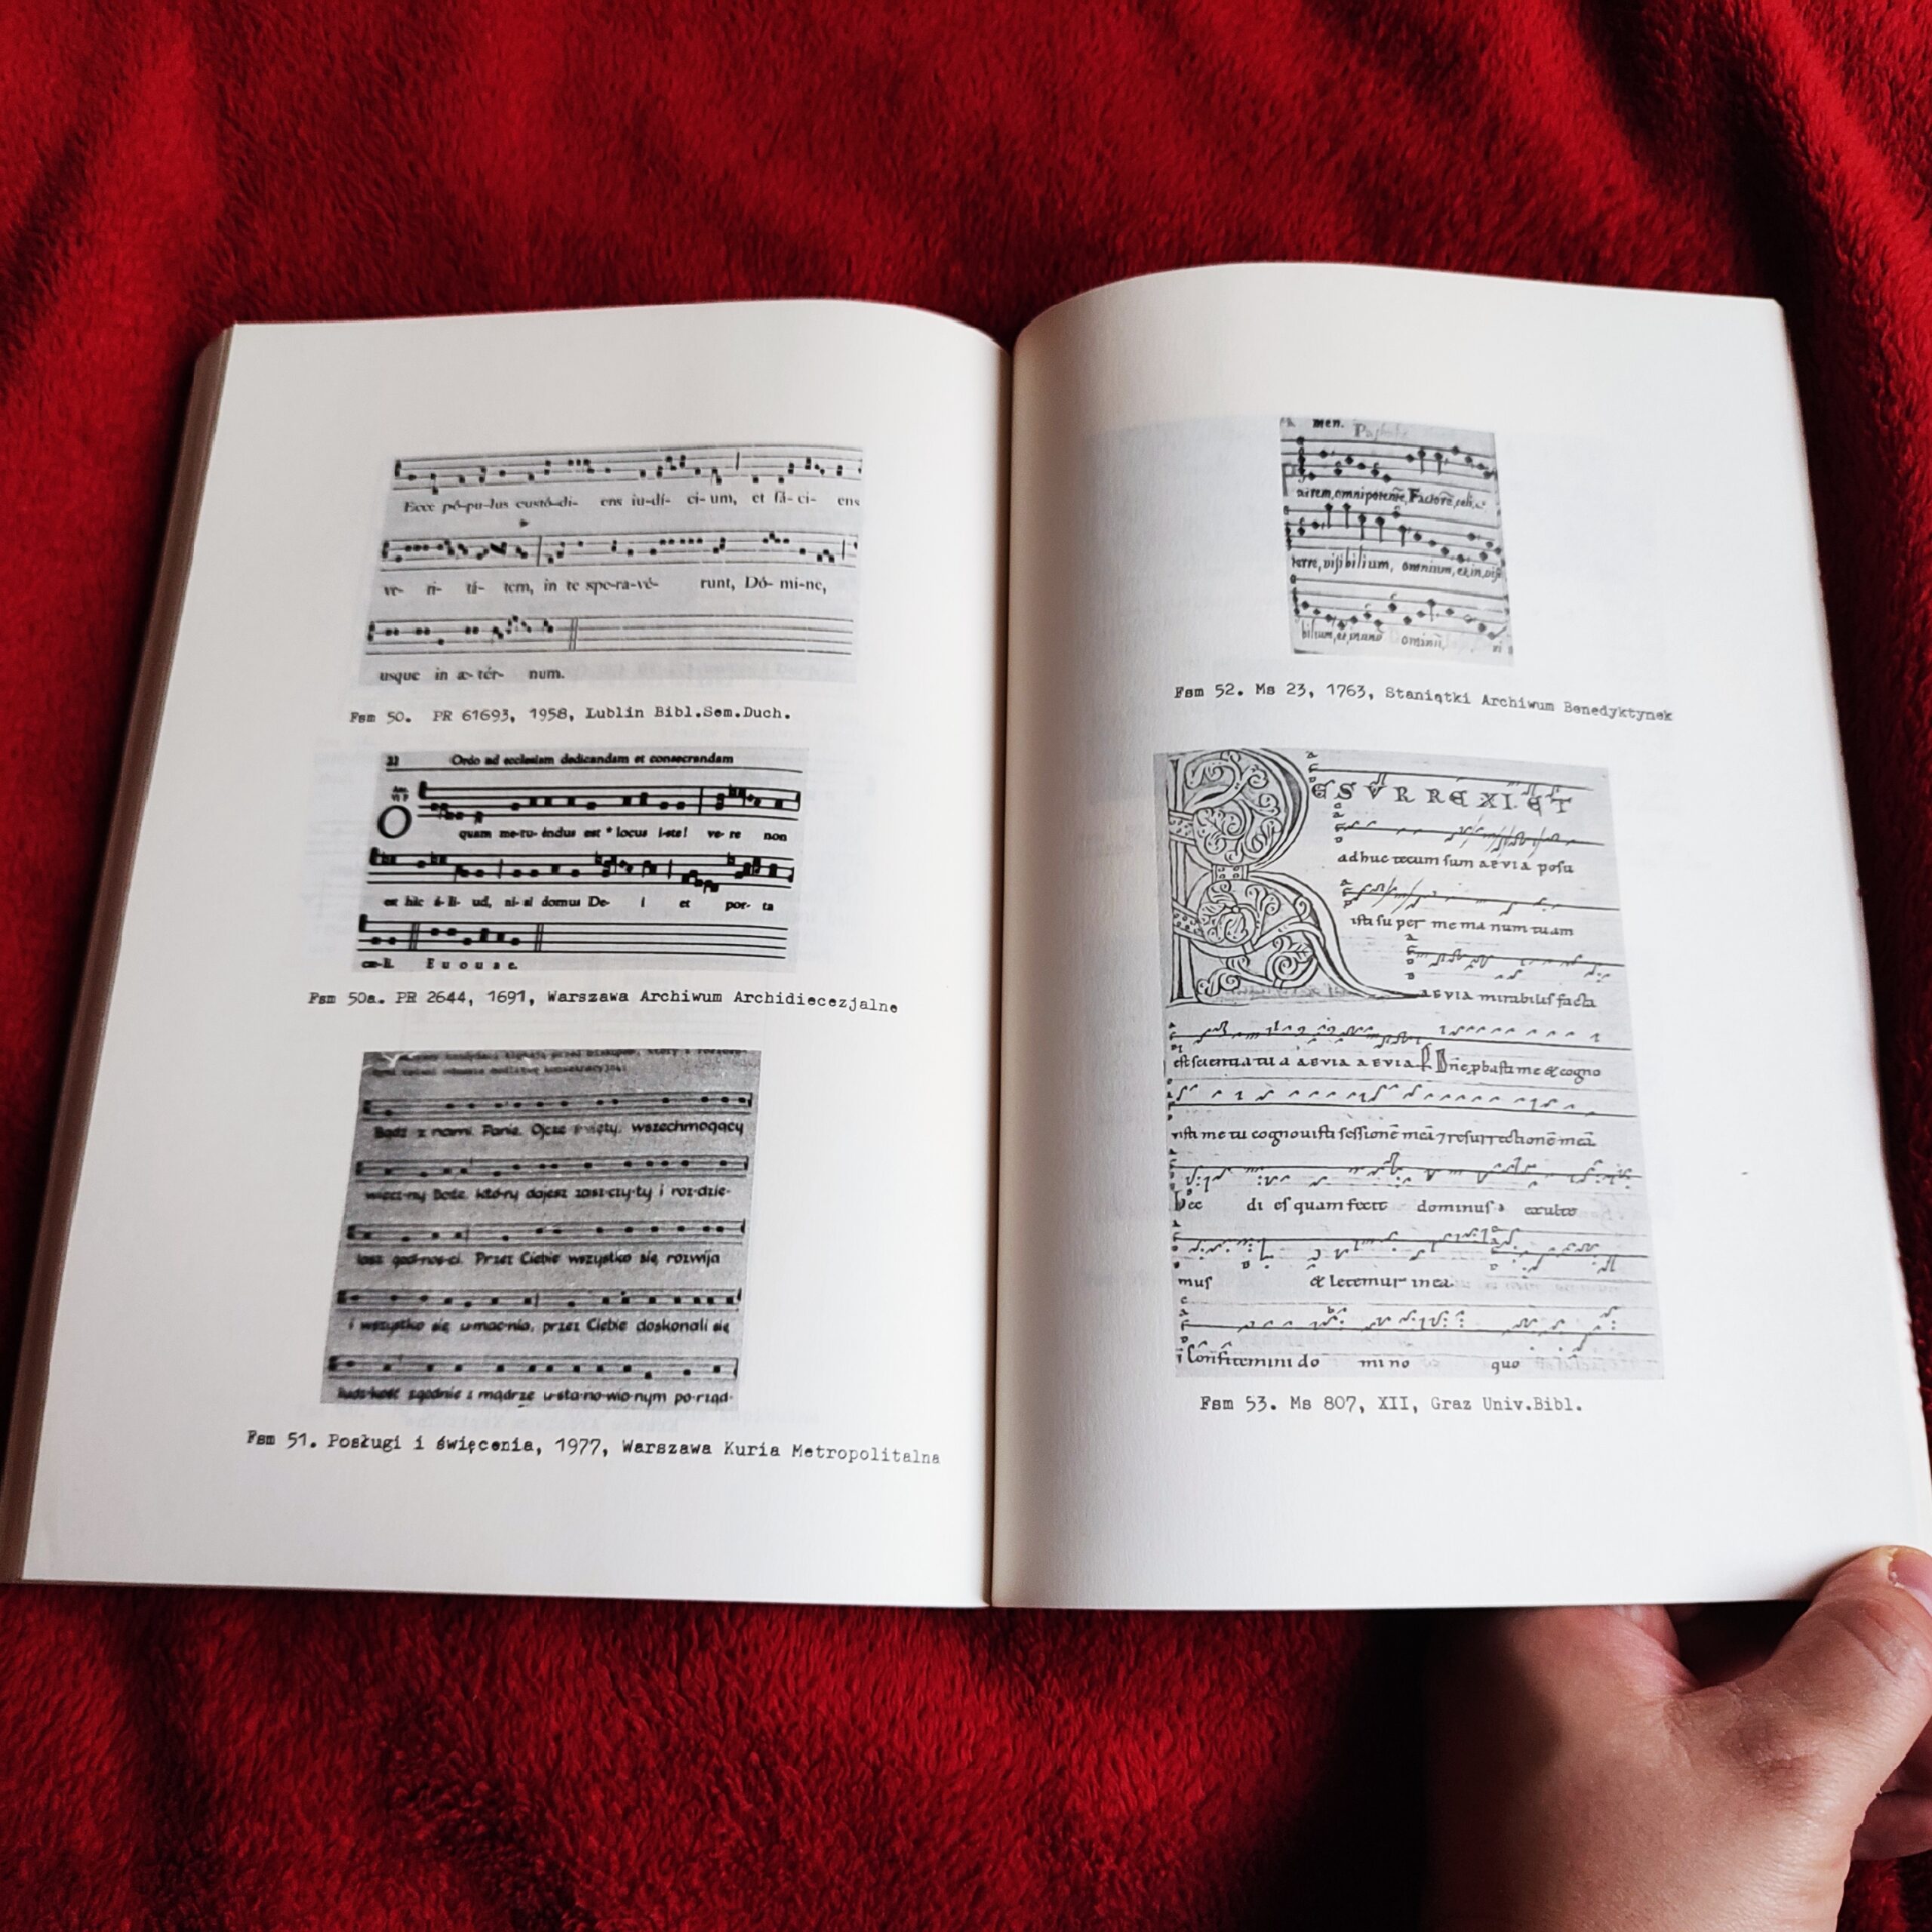 Ecce pó-pu-lus custó-di- ens iu-dí- ci-um, et fá-ci- ens
ve- ri- tá- tem, in te spe-ra-vé- runt, Dó- mi-ne,
usque in æ-tér- num.
Fsm 50. PR 61693, 1958, Lublin Bibl.Sem.Duch.
Ordo ad ecclesiam dedicandam et consecrandam
O
quam me-tu- éndus est * locus i-ste! ve- re non
est hic á-li- ud, ni-si domus De- i et por- ta
cæ-li. E u o u a e.
Fsm 50a. PR 2644, 1691, Warszawa Archiwum Archidiecezjalne
Bądź z nami Panie, Ojcze święty, wszechmogący
wiecz-ny Boże, któ-ry dajesz zasz-czy-ty i roz-dzie-
lasz god-noś-ci. Przez Ciebie wszystko się rozwija
i wszystko się u-mac-nia, przez Ciebie doskonali się
ludz-kość zgodnie z mądrze u-sta-no-wio-nym po-rząd-
Fsm 51. Posługi i święcenia, 1977, Warszawa Kuria Metropolitalna
men.
atrem, omnipotentē, Factorē, celi,
terre, visibilium, omnium, et in, visi
bilium,
Fsm 52. Ms 23, 1763, Staniątki Archiwum Benedyktynek
RESVRREXI ET
adhuc tecum sum AEVIA posu
isti su per me ma num tuam
AEVIA mirabilis facta
est scientia tu a AEVIA AEVIA Dne pbasti me & cogno
visti me tu cognouisti sessionē meā 7 resurrectionē meā
hec di es quam fecit dominus exulte
mus & letemur in ea
Confitemini do mi no quo
Fsm 53. Ms 807, XII, Graz Univ.Bibl.